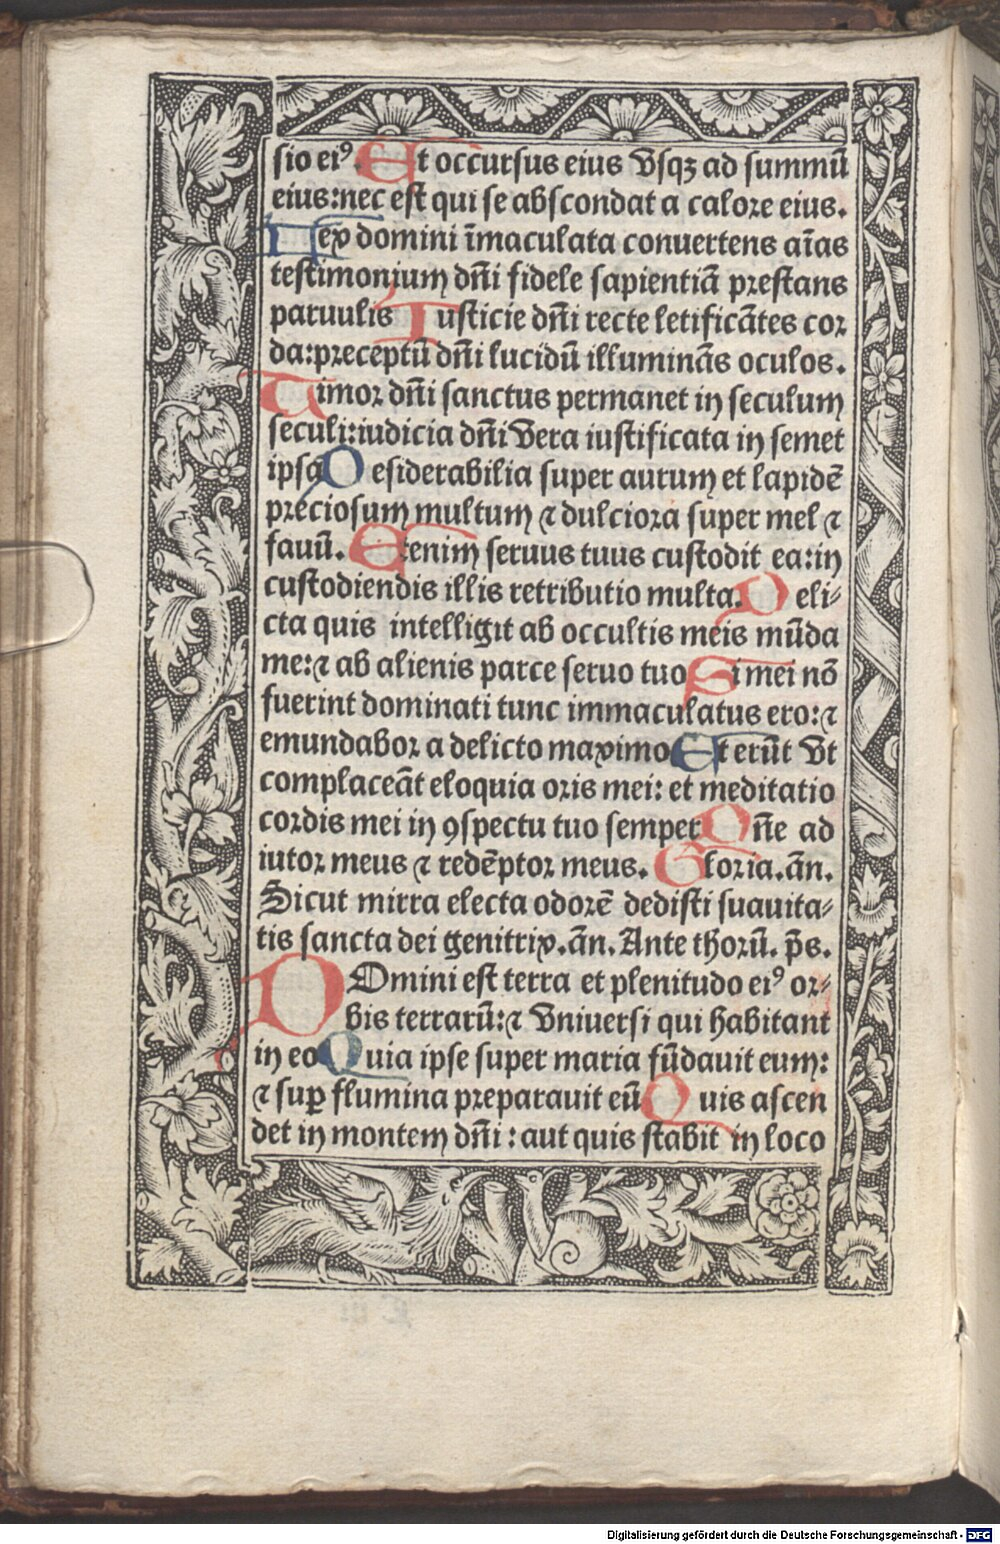 sio eiꝰ. Et occursus eius vsqꝫ ad summū
eius: nec est qui se abscondat a calore eius.
Lex domini īmaculata conuertens aīas
testimonium dn̄i fidele sapientiā prestans
paruulis Iusticie dn̄i recte letificātes cor
da: preceptū dn̄i lucidū illuminās oculos.
Timor dn̄i sanctus permanet in seculum
seculi: iudicia dn̄i vera iustificata in semet
ipsa Desiderabilia super aurum et lapidē
preciosum multum ⁊ dulciora super mel ⁊
fauū. Etenim seruus tuus custodit ea: in
custodiendis illis retributio multa. Deli⸗
cta quis intelligit ab occultis meis mūda
me: ⁊ ab alienis parce seruo tuo Si mei nō
fuerint dominati tunc immaculatus ero: ⁊
emundabor a delicto maximo Et erūt vt
complaceāt eloquia oris mei: et meditatio
cordis mei in ꝯspectu tuo semper Dn̄e ad
iutor meus ⁊ redēptor meus. Gloria. an̄.
Sicut mirra electa odorē dedisti suauita⸗
tis sancta dei genitrix. an̄. Ante thorū. ps̄.
DOmini est terra et plenitudo eiꝰ or⸗
bis terrarū: ⁊ vniuersi qui habitant
in eo Quia ipse super maria fūdauit eum:
⁊ suꝑ flumina preparauit eū Quis ascen
det in montem dn̄i: aut quis stabit in loco
Digitalisierung gefördert durch die Deutsche Forschungsgemeinschaft - DFG